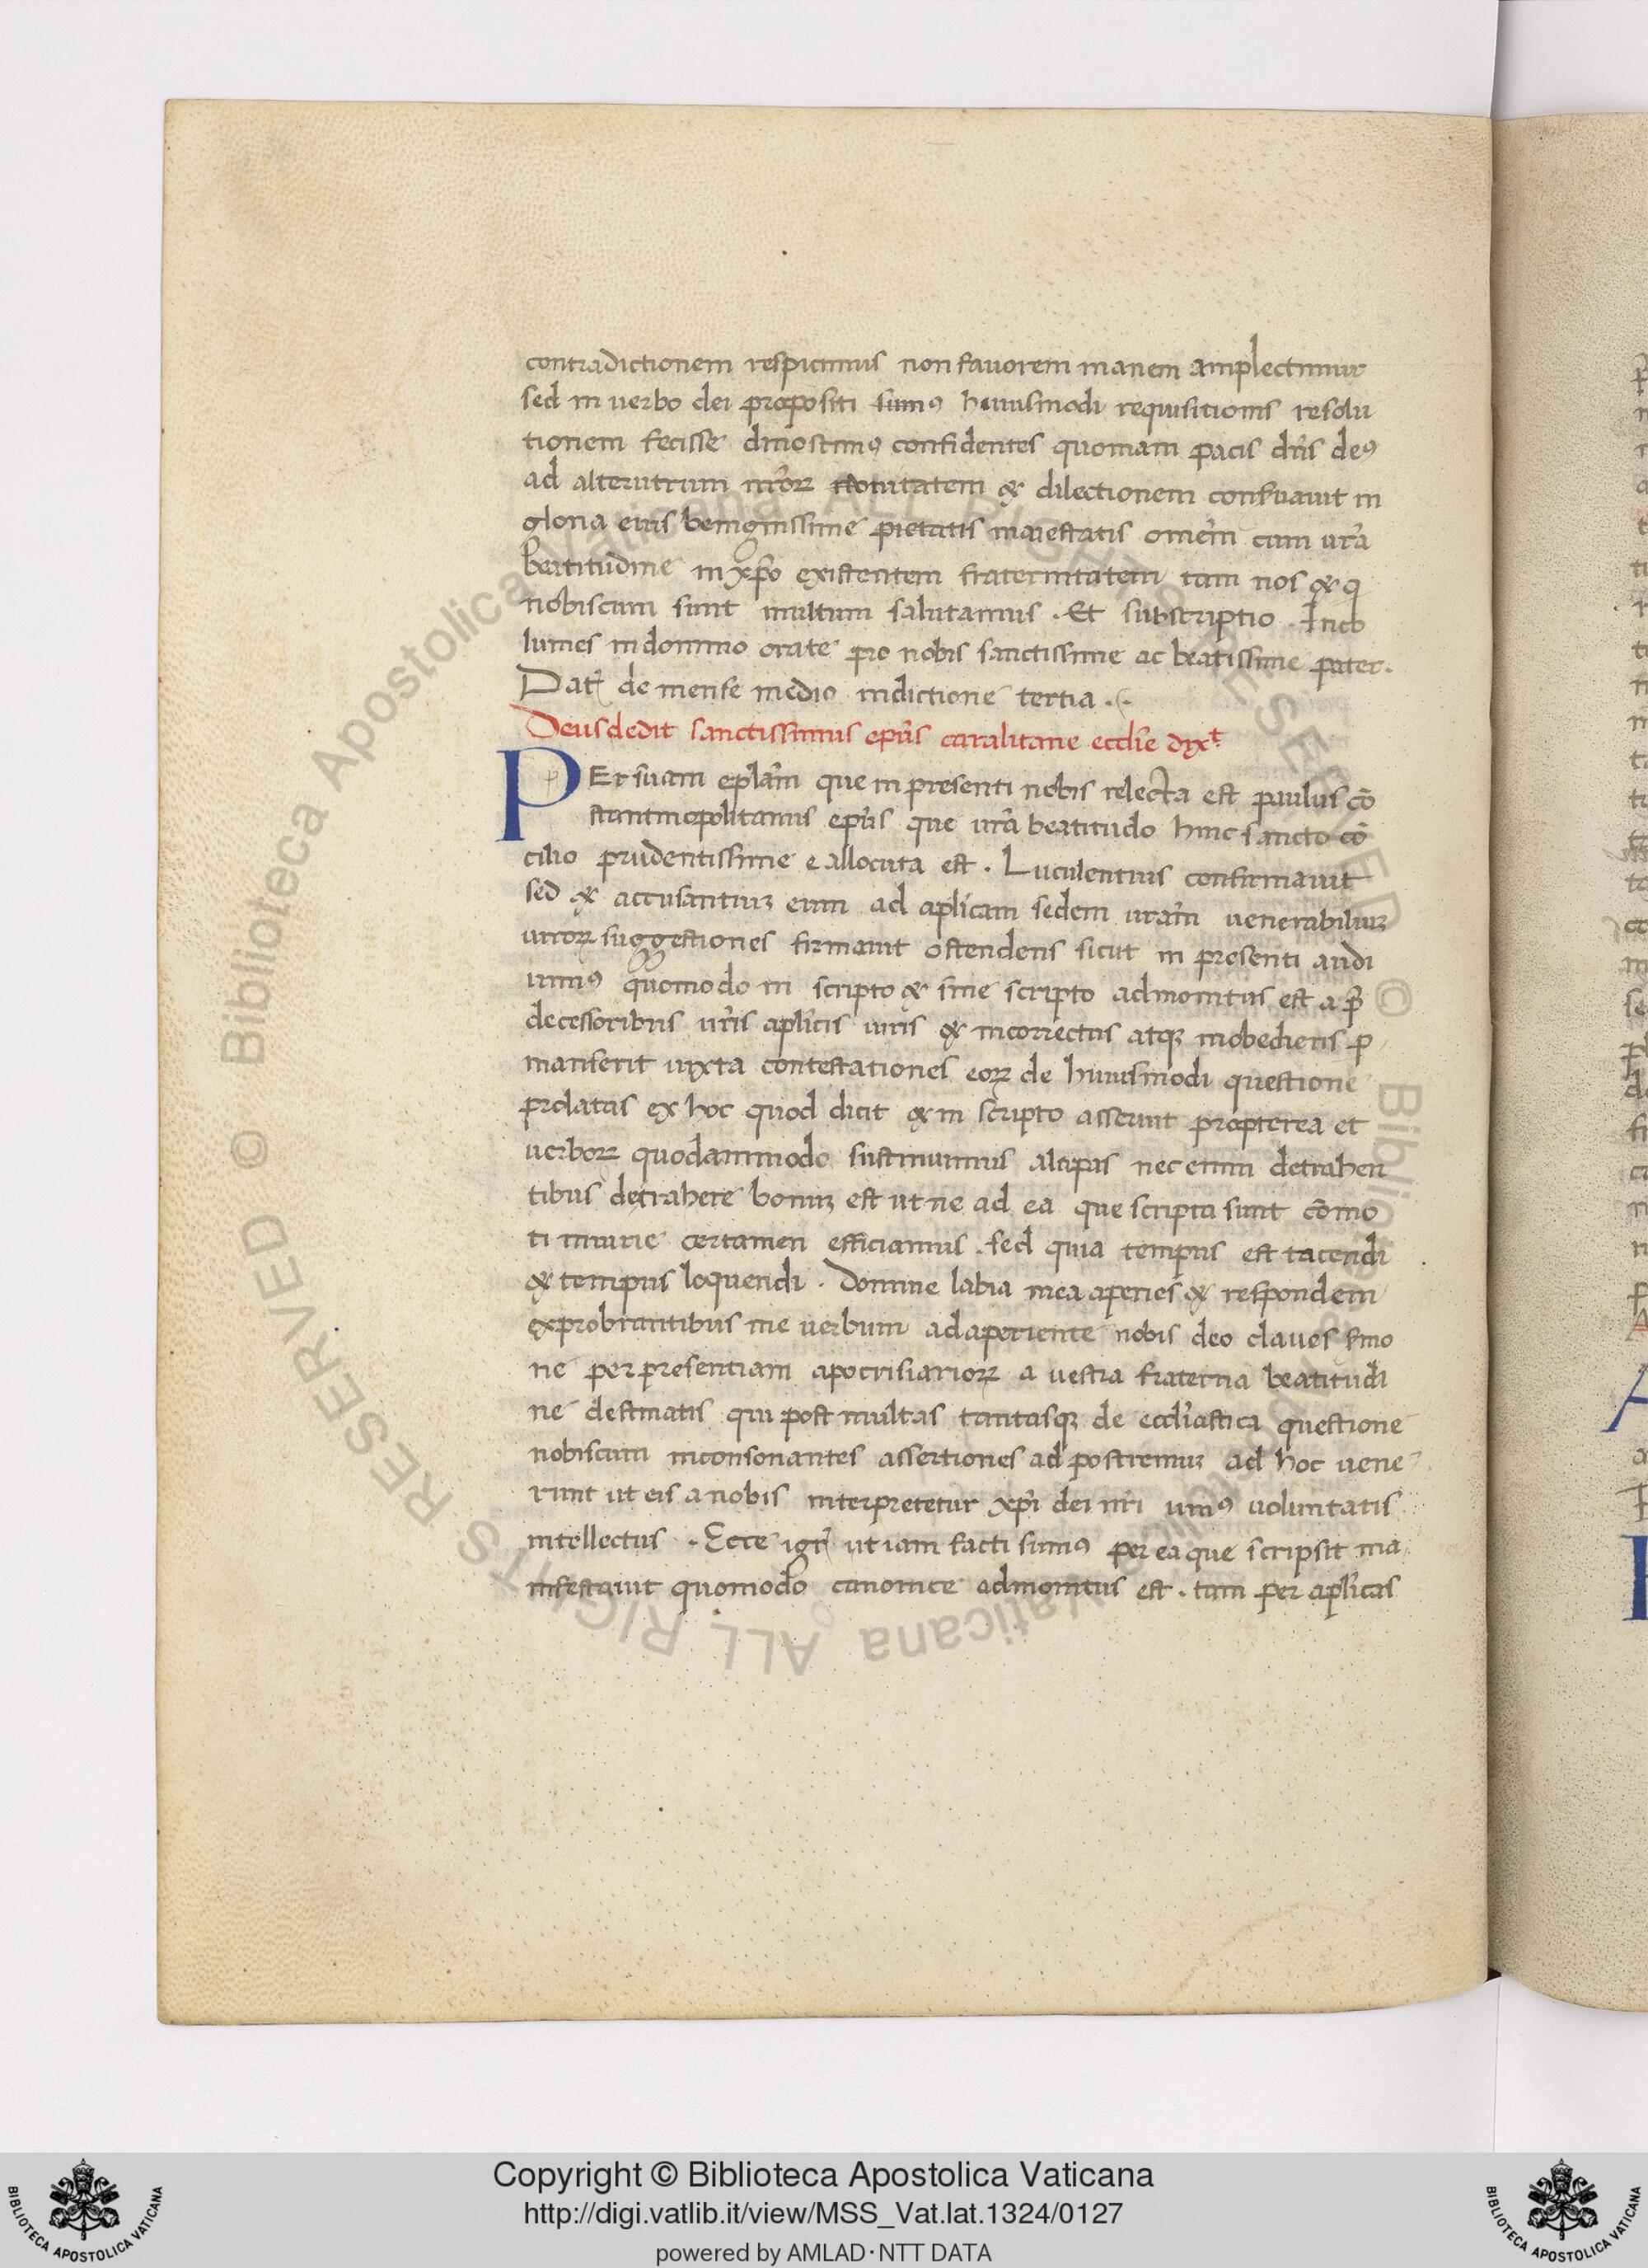 contradictionem respicimus non fauorem inanem amplectimur
sed in uerbo dei propositi sumꝰ huiusmodi requisitionis resolu
tionem fecisse confidentes quoniam pacis dn̄s deꝰ
ad alterutrum nr̄oꝝ unitatem & dilectionem conseruauit in
gloria eius benignissime pietatis maiestatis omēm cum ur̄a
beatitudine in xp̄o existentem fraternitatem tam nos & q
nobiscum sunt multum salutamus . Et subscriptio . Inco
lumes in domino orate pro nobis sanctissime ac beatissime pater .
Dat de mense medio indictione tertia .
Deusdedit sanctissimus ep̄us caralitane eccl̄ie dixt
PEr suam epl̄am que in presenti nobis relecta est paulus cō
stantinopolitanus ep̄us que ur̄a beatitudo hinc sancto cō
cilio prudentissime e allocuta est . Luculentius confirmauit
sed & accusantiuꝫ eum ad apl̄icam sedem ur̄am uenerabiliuꝫ
uiroꝝ suggestiones firmauit ostendens sicut in presenti audi
uimꝰ quomodo in scripto & sine scripto admonitus est a p̄
decessoribus ur̄is apl̄icis uiris & incorrectus atqꝫ inobediens ꝑ
manserit iuxta contestationes eoꝝ de huiusmodi questione
prolatas ex hoc quod dicit & in scripto asserunt propterea et
uerboꝝ quodammodo sustinuimus alapas nec enim detrahen
tibus detrahere bonuꝫ est ut ne ad ea que scripta sunt cōmo
ti iniurie certamen efficiamus . sed quia tempus est tacendi
& tempus loquendi . Domine labia mea aperies & respondem
exprobrantibus me uerbum adaperiente nobis deo claues smo
ne per presentiam apocrisiarioꝝ a uestra fraterna beatitudi
ne destinatis qui post multas tantasqꝫ de eccl̄iastica questione
nobiscum inconsonantes assertiones ad postremuꝫ ad hoc uene
runt ut eis a nobis interpretetur xp̄i dei nr̄i unꝰ uoluntatis
intellectus . Ecce igr̄ ut iam facti sumꝰ per ea que scripsit ma
nifestauit quomodo canonice admonitus est . tam per apl̄icas
© Biblioteca Apostolica Vaticana ALL RIGHTS RESERVED © Biblioteca Apostolica Vaticana ALL RIGHTS RESERVED
BIBLIOTECA APOSTOLICA VATICANA
Copyright © Biblioteca Apostolica Vaticana
http://digi.vatlib.it/view/MSS_Vat.lat.1324/0127
powered by AMLAD·NTT DATA
BIBLIOTECA APOSTOLICA VATICANA